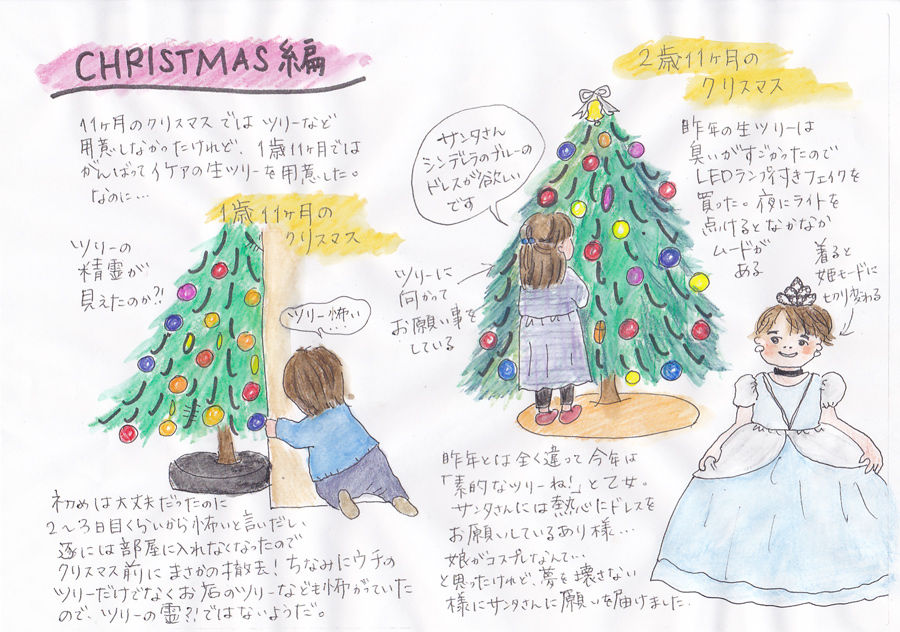 CHRISTMAS編
11ヶ月のクリスマスではツリーなど
用意しなかったけれど、1歳11ヶ月では
がんばってイケアの生ツリーを用意した。
なのに…
1歳11ヶ月の
クリスマス
ツリーの
精霊が
見えたのか?!
ツリー怖い
…
初めは大丈夫だったのに
2〜3日目くらいから怖いと言いだし、
遂には部屋に入れなくなったので
クリスマス前にまさかの撤去！ちなみにウチの
ツリーだけでなくお店のツリーなども怖がっていた
ので、ツリーの霊?!ではないようだ。
2歳11ヶ月の
クリスマス
サンタさん
シンデレラのブルーの
ドレスが欲しい
です
ツリーに
向かって
お願い事を
している
昨年の生ツリーは
臭いがすごかったので
LEDランプ付きフェイクを
買った。夜にライトを
点けるとなかなか
ムードが
ある
着ると
姫モードに
切り変わる
昨年とは全く違って今年は
「素的なツリーね!」と乙女。
サンタさんには熱心にドレスを
お願いしているあり様…
娘がコスプレなんて…
と思ったけれど、夢を壊さない
様にサンタさんに願いを届けました。